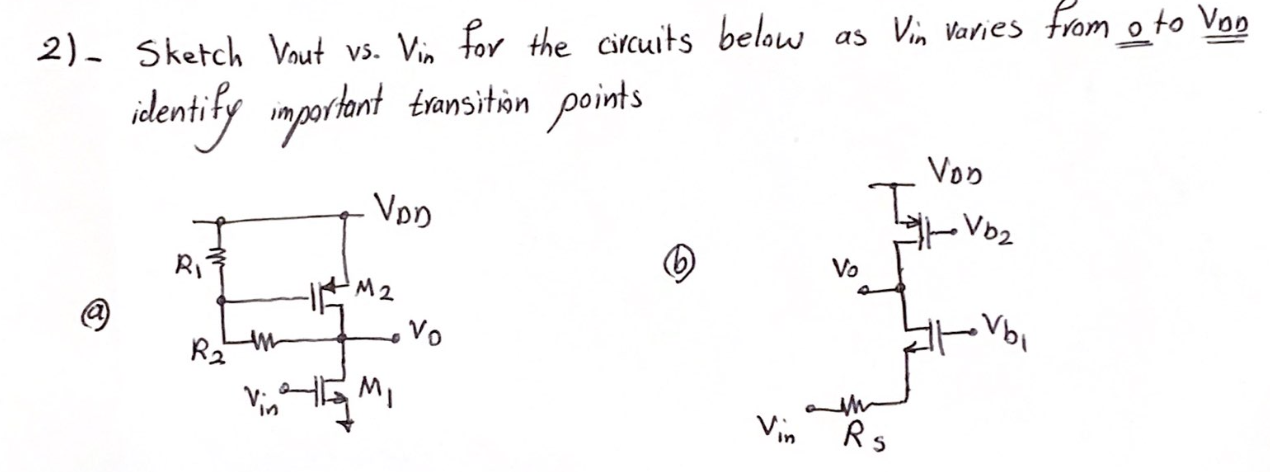 2)- Sketch Vout vs. Vin for the circuits below as Vin varies from 0 to VDD
identify important transition points
VDD
VDD
R1
Vb2
M2
b
Vo
a
Vo
R2
Vb1
Vin
M1
Vin
Rs